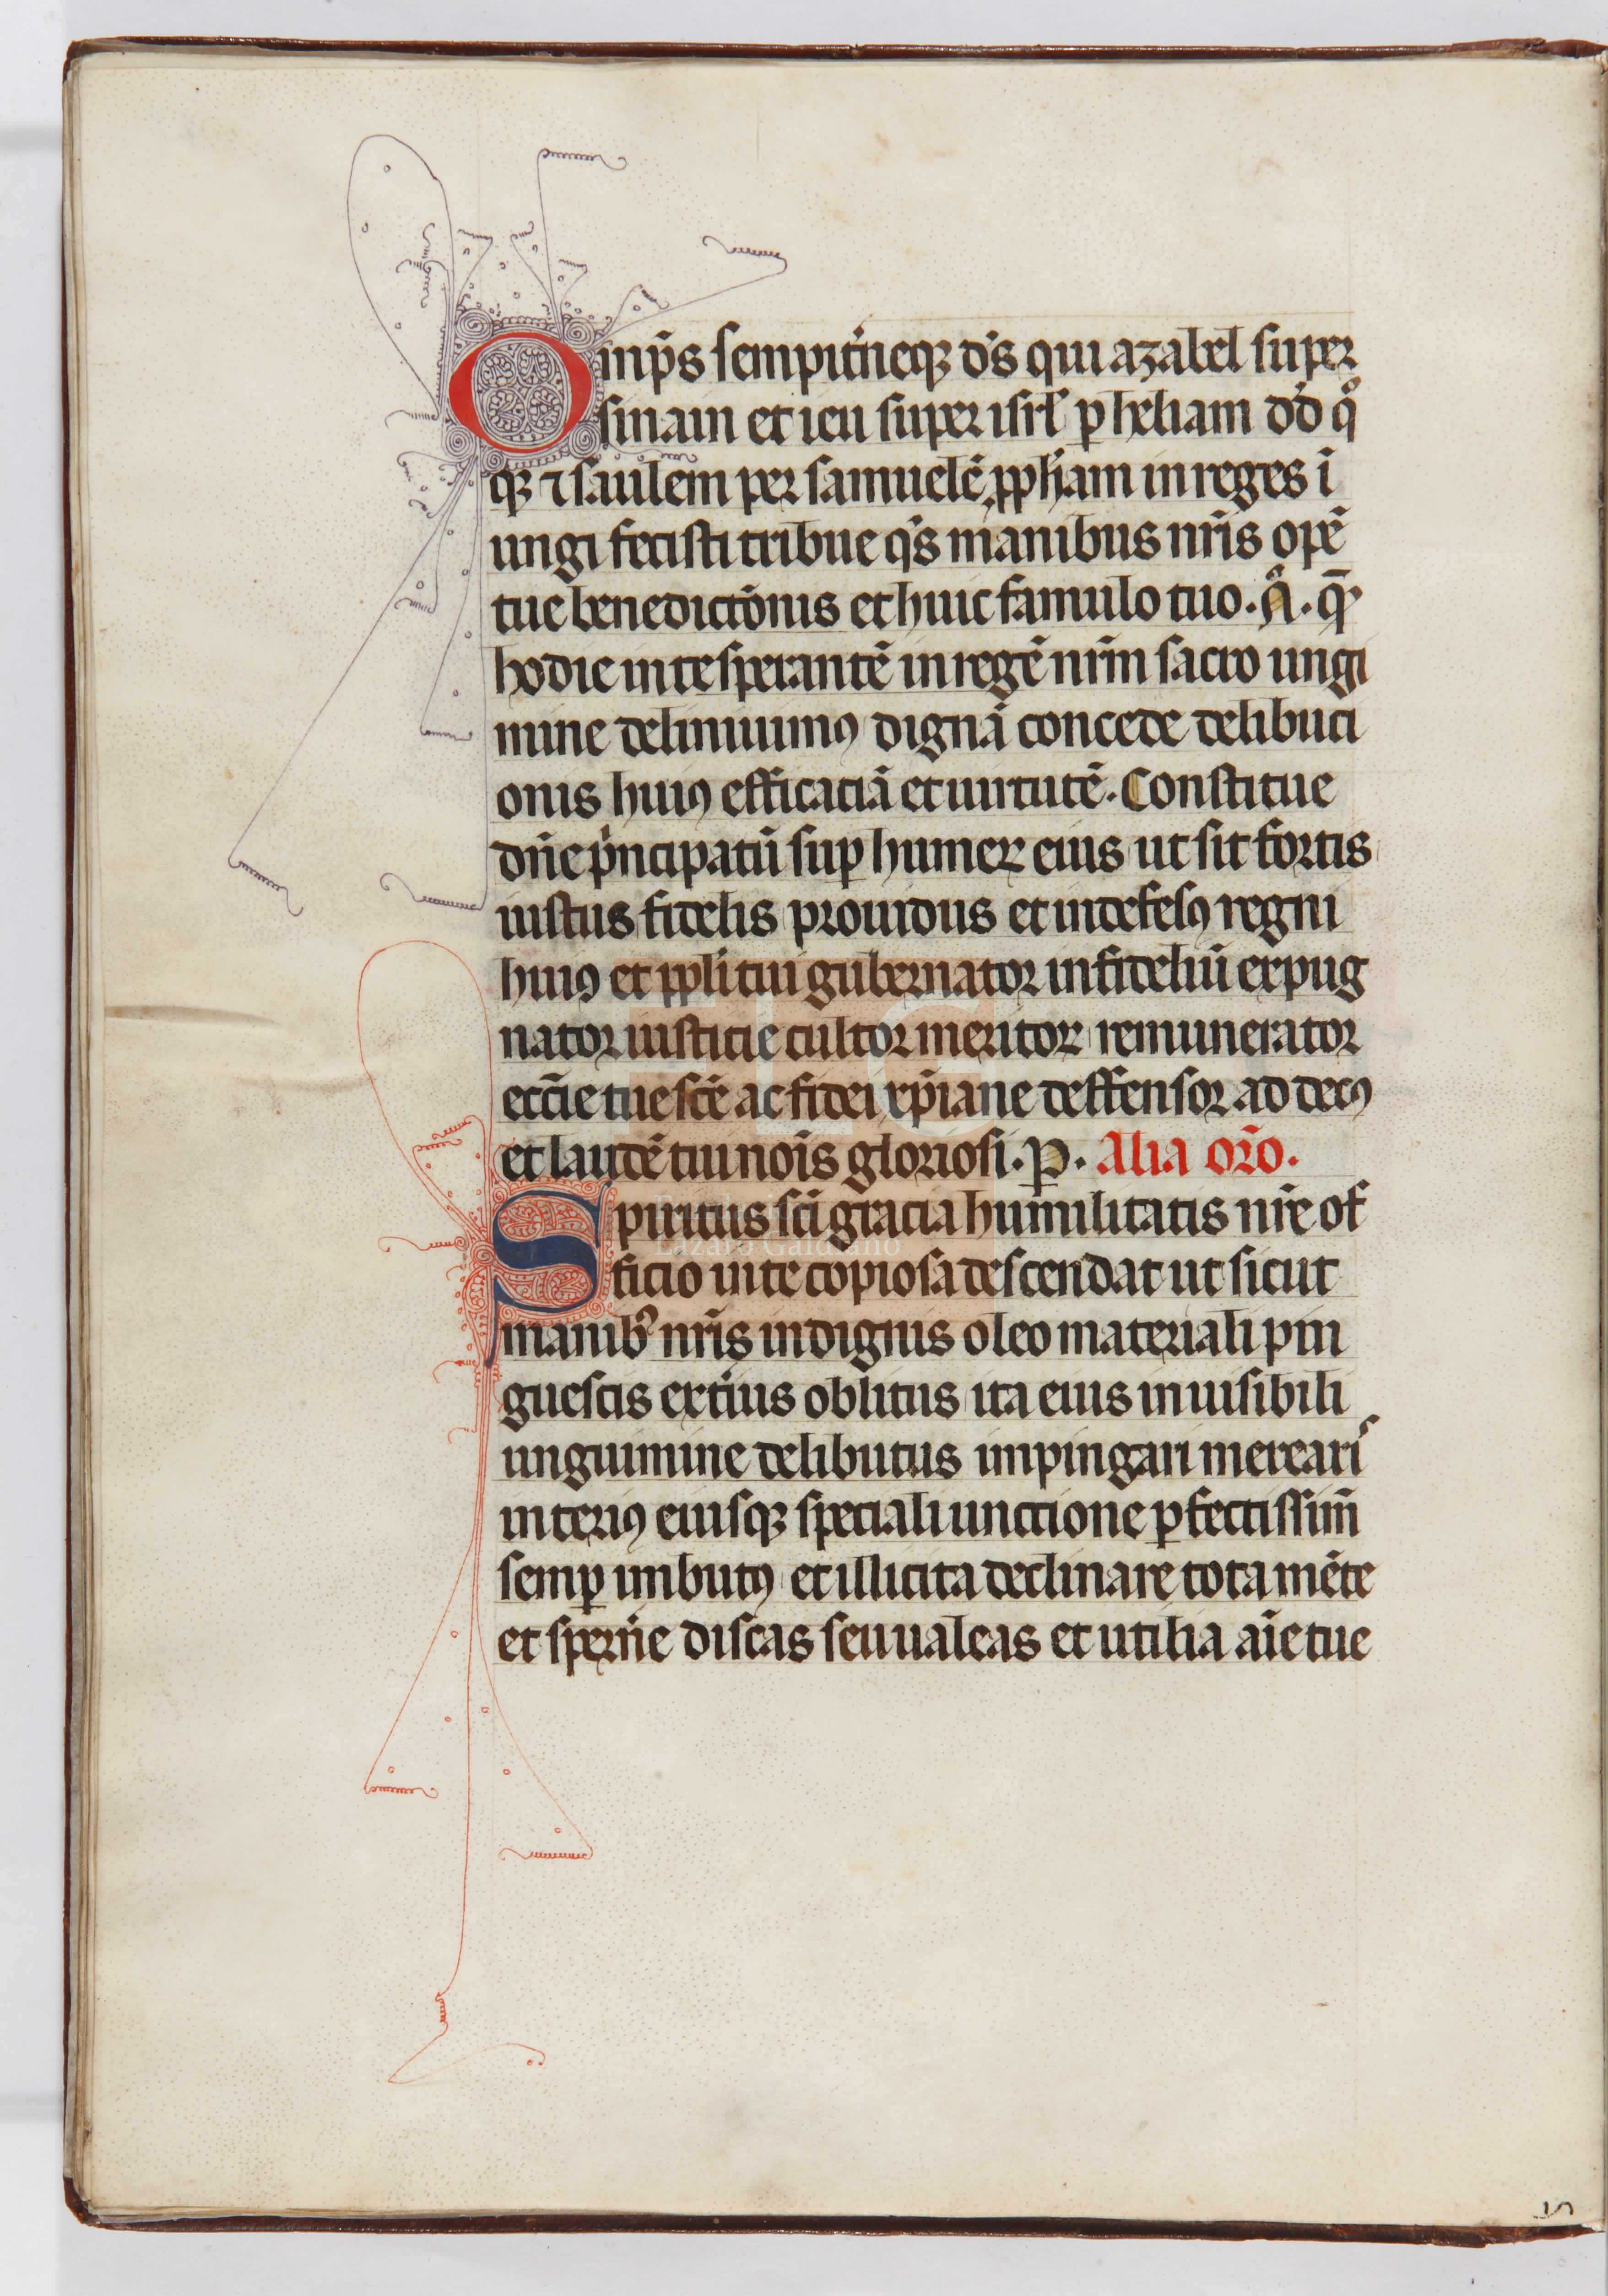 Omp̄s sempit̉neqꝫ d̉s qui azabel super
sinain et ieu super isrl̄ ꝑ heliam dd̉ qͦ
qꝫ ⁊ saulem per samuelē ꝓpħam in reges ī
ungi fecisti tribue qs̄ manibus nr̄is opē
tue benedictōnis et huic famulo tuo. A̾. q̄ꝫ
hodie in te sperantē in regē nr̄m sacro ungi
mine deliniuimꝰ dignā concede delibuti
onis huiꝰ efficaciā et uirtutē. Constitue
dn̄e p̉ncipatū suꝑ humeꝝ eius ut sit fortis
iustus fidelis prouidus et indefesꝰ regni
huiꝰ et ppli tui gubernator infideliū expug
nator iusticie cultor meritoꝝ remunerator
ecc̄ie tue sc̄e ac fidei xp̄iane deffensor ad decꝰ
et laudē tui nois̄ gloriosi. P̱. Alia or̄o.
Spiritus sc̄i gracia humilitatis nr̄e of
ficio in te copiosa descendat ut sicut
manibꝰ nr̄is indignis oleo materiali pin
guescis ext̉ius oblitus ita eius inuisibili
unguimine delibutus impingari merearis
interiꝰ eiusqꝫ speciali unctione ꝑfectissim̄
semꝑ imbutꝰ et illicita declinare tota mēte
et spern̄e discas seu ualeas et utilia aīe tue
Lázaro Galdiano